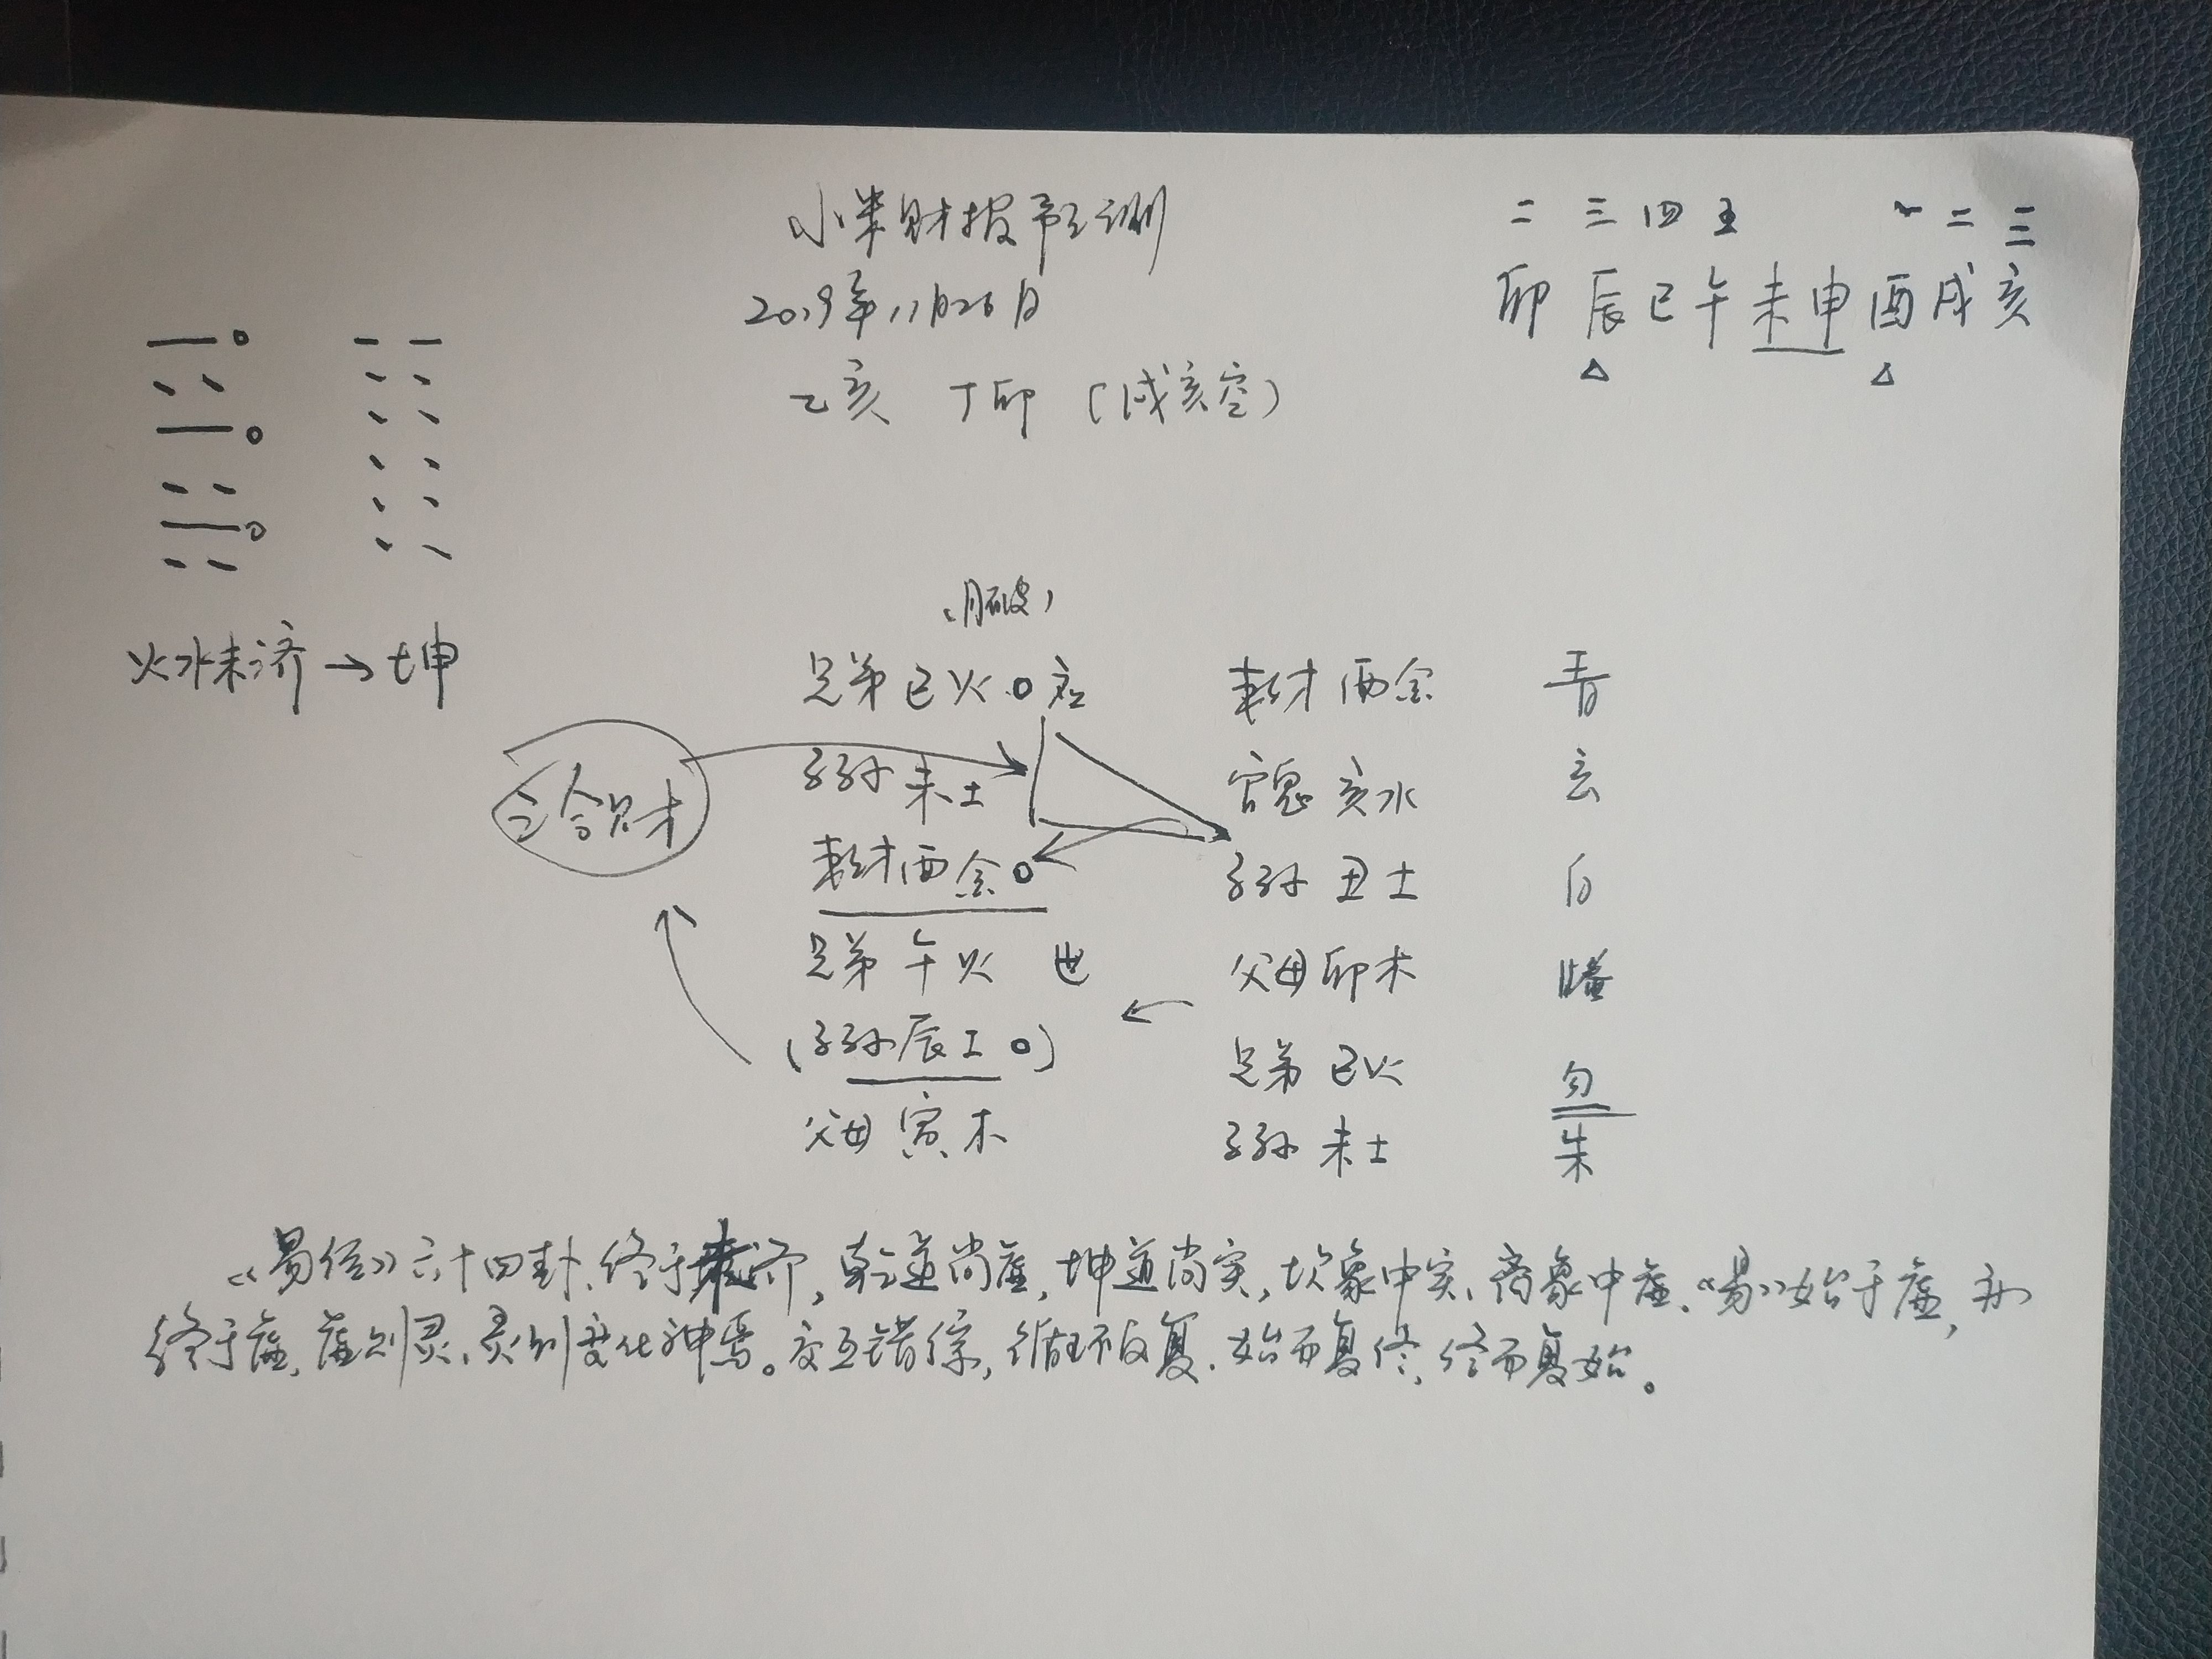 小米财报预测
2019年11月26日
乙亥 丁卯 (戌亥空)
二 三 四 五 一 二 三
卯 辰 巳 午 未 申 酉 戌 亥
火水未济→坤
(月破)
兄弟巳火 应 妻财酉金 青
子孙未土 官鬼亥水 玄
三合财
妻财酉金 子孙丑土 白
兄弟午火 世 父母卯木 螣
(子孙辰土) 兄弟巳火 勾
父母寅木 子孙未土 朱
《易经》六十四卦,终于未济,乾道尚虚,坤道尚实,坎象中实,离象中虚,《易》始于虚,亦
终于虚,虚则灵,灵则变化神焉。交互错综,循环反复,始而复终,终而复始。